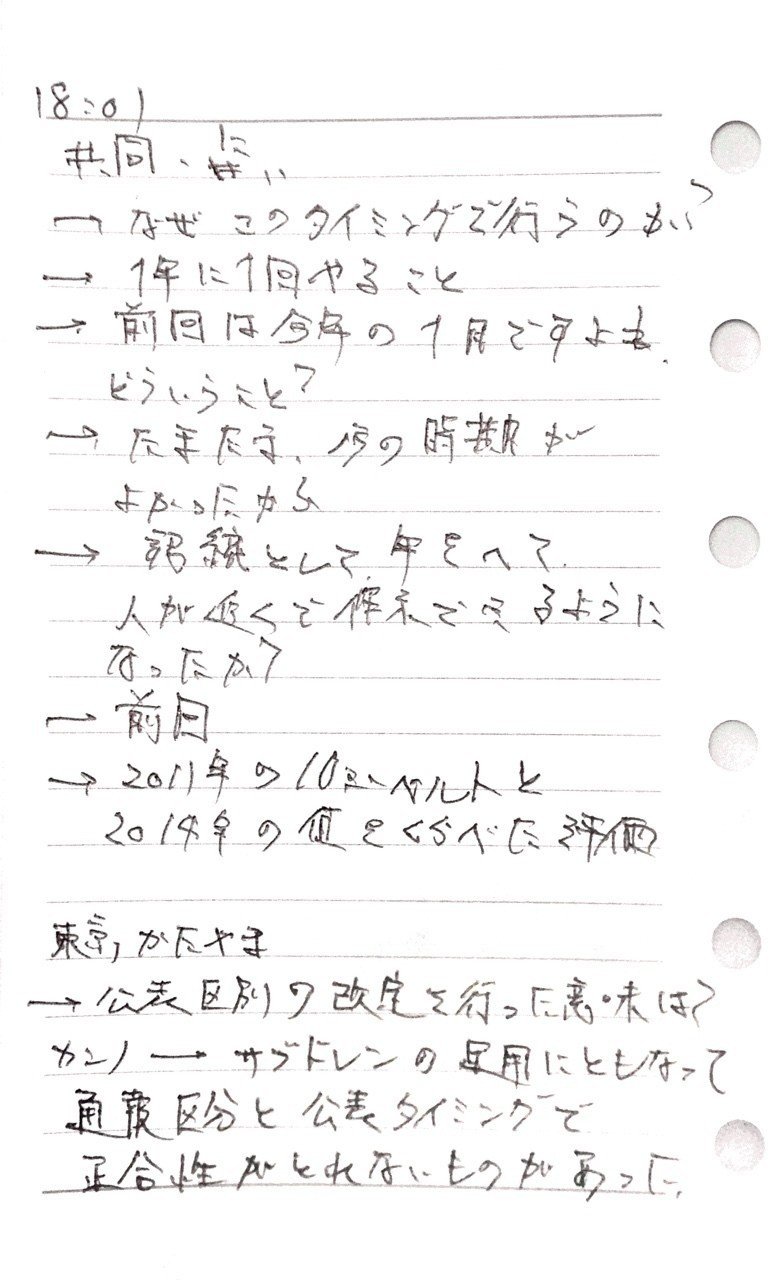 18:01
共同、
→ なぜ このタイミングで行うのか?
→ 1年に1回やること
→ 前回は今年の1月ですよね、
どういうこと?
→ たまたま、今の時期が
よかったから
→ として、年をへて
人が近くで作業できるように
なったか?
→ 前回
→ 2011年の10ミリシーベルトと
2014年の値をくらべた評価
東京,かたやま
→ 公表区別の改定を行った意味は?
カンノ → サブドレンの運用にともなって
通報区分と公表タイミングで
正合性がとれないものがあった。